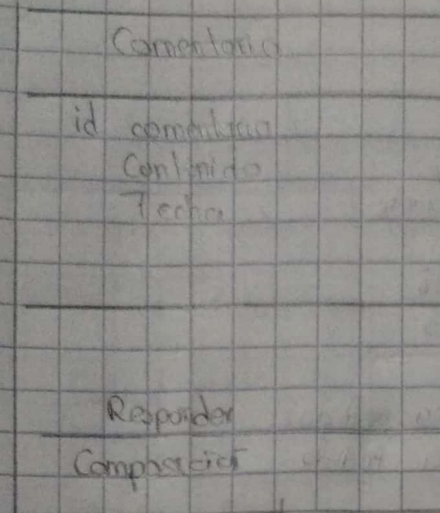 Comentario
id comentario
Contenido
Fecha
Responder